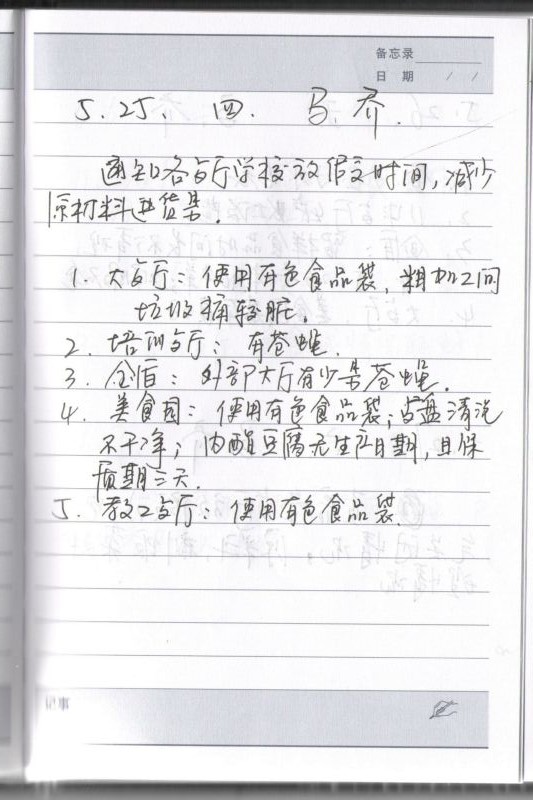 备忘录
日 期 / /
5.25. 四. 马 乔.
通知各歺厅学校放假文时间,减少
原材料进货量.
1. 大歺厅:使用有色食品袋,粗加工间
垃圾桶较脏.
2. 培训歺厅:有苍蝇.
3. 金盾:外部大厅有少量苍蝇.
4. 美食园:使用有色食品袋;歺盘清洗
不干净;内酯豆腐无生产日期,且保
质期三天.
5. 教工歺厅:使用有色食品袋.
记事